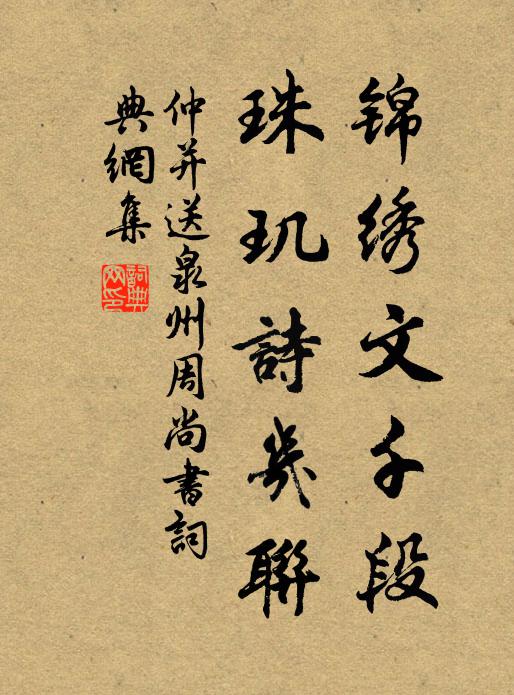 锦绣文千段
珠玑詩幾聯
仲并送泉州周尚書詞
典網集
詞典網印